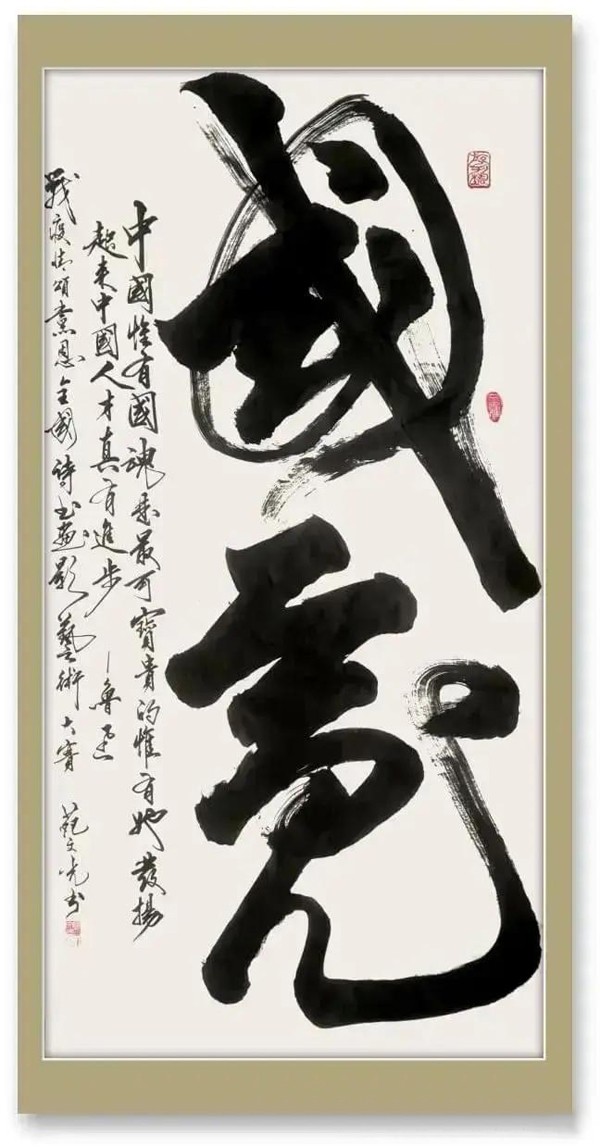 國魂
中國惟有國魂是最可寶貴的惟有她發揚
起來中國人才真有進步
—魯迅
戰疫情頌黨恩全國詩书畫影藝術大賽
范文光书